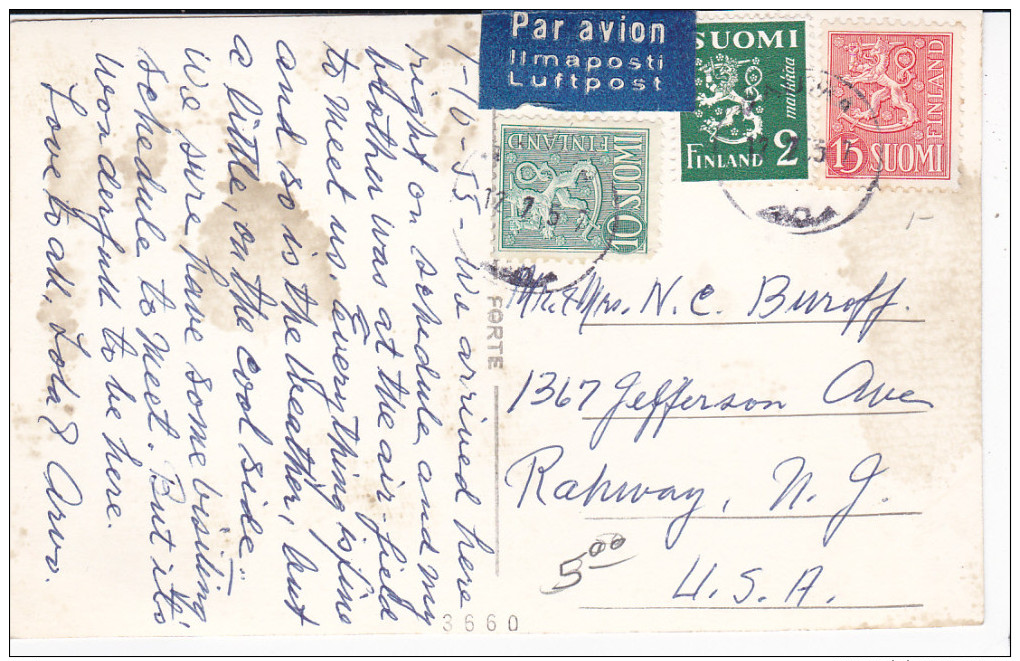 Par avion
Ilmaposti
Luftpost
SUOMI
markkaa
FINLAND 2
FINLAND
15 SUOMI
FINLAND
10 SUOMI
12.7.5
7-10-55- We arrived here
right on schedule and my
brother was at the air-field
to meet us, everything is fine
and so is the weather, but
a little, on the cool side.
We sure have some visiting
schedule to meet. But its
wonderfull to be here.
Love to all, Lola & Arvo.
FÖRTE
Mr. & Mrs. N. C. Buroff.
1367 Jefferson Ave
Rahway, N. J.
U. S. A.
5.00
3660